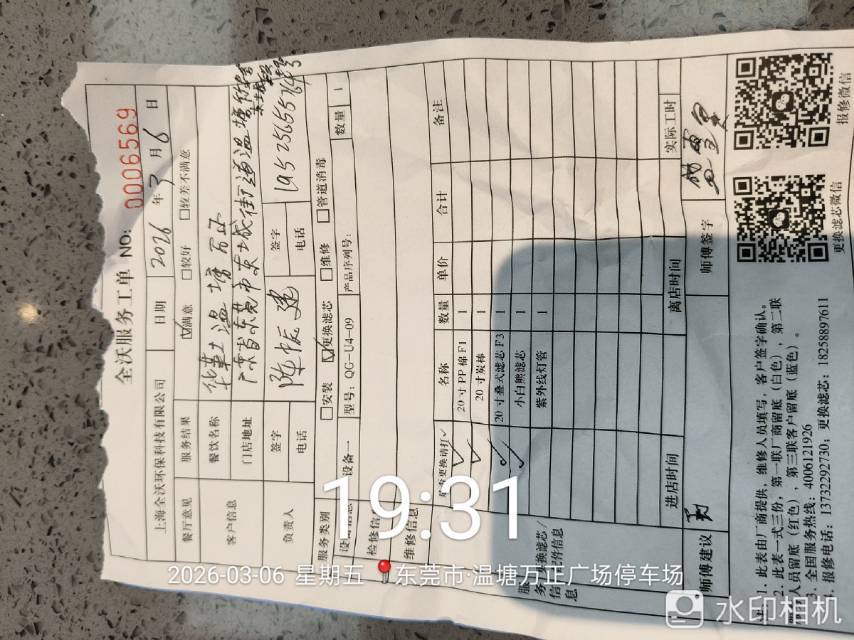 全沃服务工单 NO: 0006569
上海全沃环保科技有限公司 日期 2026 年 3 月 6 日
餐厅意见 服务结果 ☑满意 □较好 □较差不满意
客户信息 餐饮名称 华莱士温塘万正
门店地址 广东省东莞市东城街道温塘
负责人 签字 陈振建 签字
电话 电话 19525655764
服务类别 □安装 ☑更换滤芯 □维修 □管道消毒
设备一 型号: QG-U4-09 产品序列号: 数量 1
检修信
维修信息
更换请打✓ 名称 数量 单价 合计 备注
✓ 20寸PP棉F1 1
✓ 20寸炭棒 1
20寸叠式滤芯F3 1
✓ 小白熊滤芯 1
✓ 紫外线灯管 1
进店时间 离店时间 实际工时
师傅建议 师傅签字
1. 此表由厂商提供, 维修人员填写, 客户签字确认。
2. 此表一式三份, 第一联厂商留底(白色), 第二联
人员留底(红色), 第三联客户留底(蓝色)。
3. 全国服务热线: 4006121926
报修电话: 13732292730; 更换滤芯: 18258897611
更换滤芯微信
报修微信
19:31
2026-03-06 星期五 东莞市·温塘万正广场停车场
水印相机